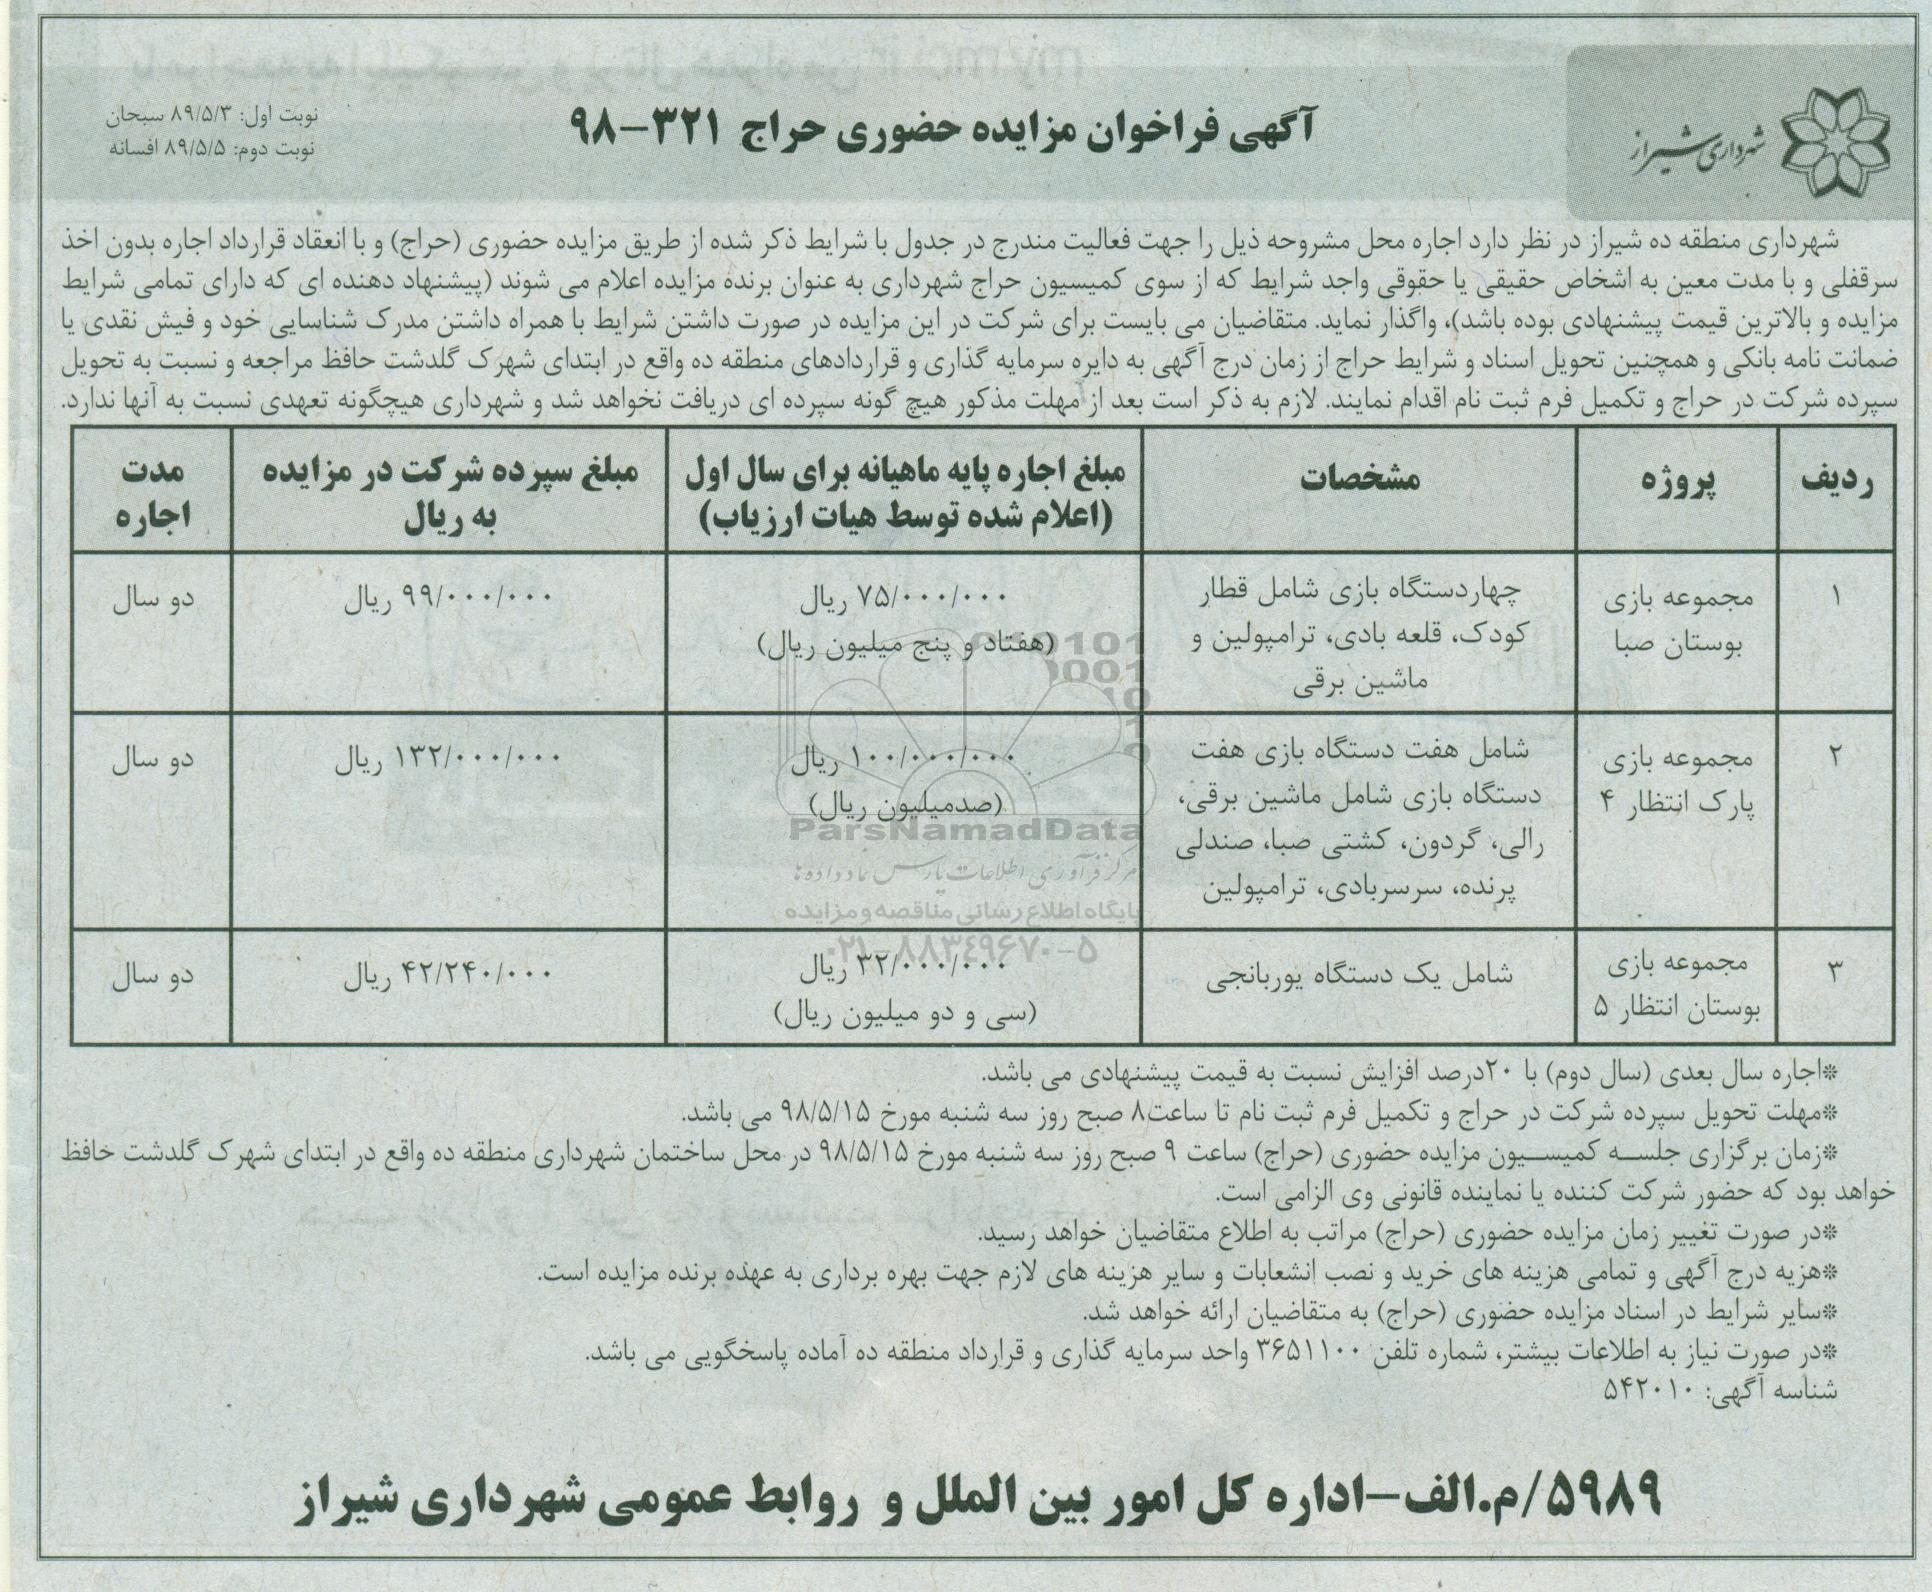 شهرداری شیراز
آگهی فراخوان مزایده حضوری حراج ۳۲۱-۹۸
نوبت اول: ۸۹/۵/۳ سبحان
نوبت دوم: ۸۹/۵/۵ افسانه
شهرداری منطقه ده شیراز در نظر دارد اجاره محل مشروحه ذیل را جهت فعالیت مندرج در جدول با شرایط ذکر شده از طریق مزایده حضوری (حراج) و با انعقاد قرارداد اجاره بدون اخذ
سرقفلی و با مدت معین به اشخاص حقیقی یا حقوقی واجد شرایط که از سوی کمیسیون حراج شهرداری به عنوان برنده مزایده اعلام می شوند (پیشنهاد دهنده ای که دارای تمامی شرایط
مزایده و بالاترین قیمت پیشنهادی بوده باشد)، واگذار نماید. متقاضیان می بایست برای شرکت در این مزایده در صورت داشتن شرایط با همراه داشتن مدرک شناسایی خود و فیش نقدی یا
ضمانت نامه بانکی و همچنین تحویل اسناد و شرایط حراج از زمان درج آگهی به دایره سرمایه گذاری و قراردادهای منطقه ده واقع در ابتدای شهرک گلدشت حافظ مراجعه و نسبت به تحویل
سپرده شرکت در حراج و تکمیل فرم ثبت نام اقدام نمایند. لازم به ذکر است بعد از مهلت مذکور هیچ گونه سپرده ای دریافت نخواهد شد و شهرداری هیچگونه تعهدی نسبت به آنها ندارد.
ردیف پروژه مشخصات مبلغ اجاره پایه ماهیانه برای سال اول مبلغ سپرده شرکت در مزایده مدت
(اعلام شده توسط هیات ارزیاب) به ریال اجاره
۱ مجموعه بازی چهاردستگاه بازی شامل قطار ۷۵/۰۰۰/۰۰۰ ریال ۹۹/۰۰۰/۰۰۰ ریال دو سال
بوستان صبا کودک، قلعه بادی، ترامپولین و (هفتاد و پنج میلیون ریال)
ماشین برقی
۲ مجموعه بازی شامل هفت دستگاه بازی هفت ۱۰۰/۰۰۰/۰۰۰ ریال ۱۳۲/۰۰۰/۰۰۰ ریال دو سال
پارک انتظار ۴ دستگاه بازی شامل ماشین برقی، (صدمیلیون ریال)
رالی، گردون، کشتی صبا، صندلی
پرنده، سرسربادی، ترامپولین
۳ مجموعه بازی شامل یک دستگاه یوربانجی ۳۲/۰۰۰/۰۰۰ ریال ۴۲/۲۴۰/۰۰۰ ریال دو سال
بوستان انتظار ۵ (سی و دو میلیون ریال)
ParsNamadData
مرکز فرآوری اطلاعات پارس نماد داده ها
پایگاه اطلاع رسانی مناقصه و مزایده
۰۲۱-۸۸۳۴۹۶۷۰-۵
*اجاره سال بعدی (سال دوم) با ۲۰درصد افزایش نسبت به قیمت پیشنهادی می باشد.
*مهلت تحویل سپرده شرکت در حراج و تکمیل فرم ثبت نام تا ساعت۸ صبح روز سه شنبه مورخ ۹۸/۵/۱۵ می باشد.
*زمان برگزاری جلسه کمیسیون مزایده حضوری (حراج) ساعت ۹ صبح روز سه شنبه مورخ ۹۸/۵/۱۵ در محل ساختمان شهرداری منطقه ده واقع در ابتدای شهرک گلدشت حافظ
خواهد بود که حضور شرکت کننده یا نماینده قانونی وی الزامی است.
*در صورت تغییر زمان مزایده حضوری (حراج) مراتب به اطلاع متقاضیان خواهد رسید.
*هزیه درج آگهی و تمامی هزینه های خرید و نصب انشعابات و سایر هزینه های لازم جهت بهره برداری به عهده برنده مزایده است.
*سایر شرایط در اسناد مزایده حضوری (حراج) به متقاضیان ارائه خواهد شد.
*در صورت نیاز به اطلاعات بیشتر، شماره تلفن ۳۶۵۱۱۰۰ واحد سرمایه گذاری و قرارداد منطقه ده آماده پاسخگویی می باشد.
شناسه آگهی: ۵۴۲۰۱۰
۵۹۸۹/م.الف-اداره کل امور بین الملل و روابط عمومی شهرداری شیراز